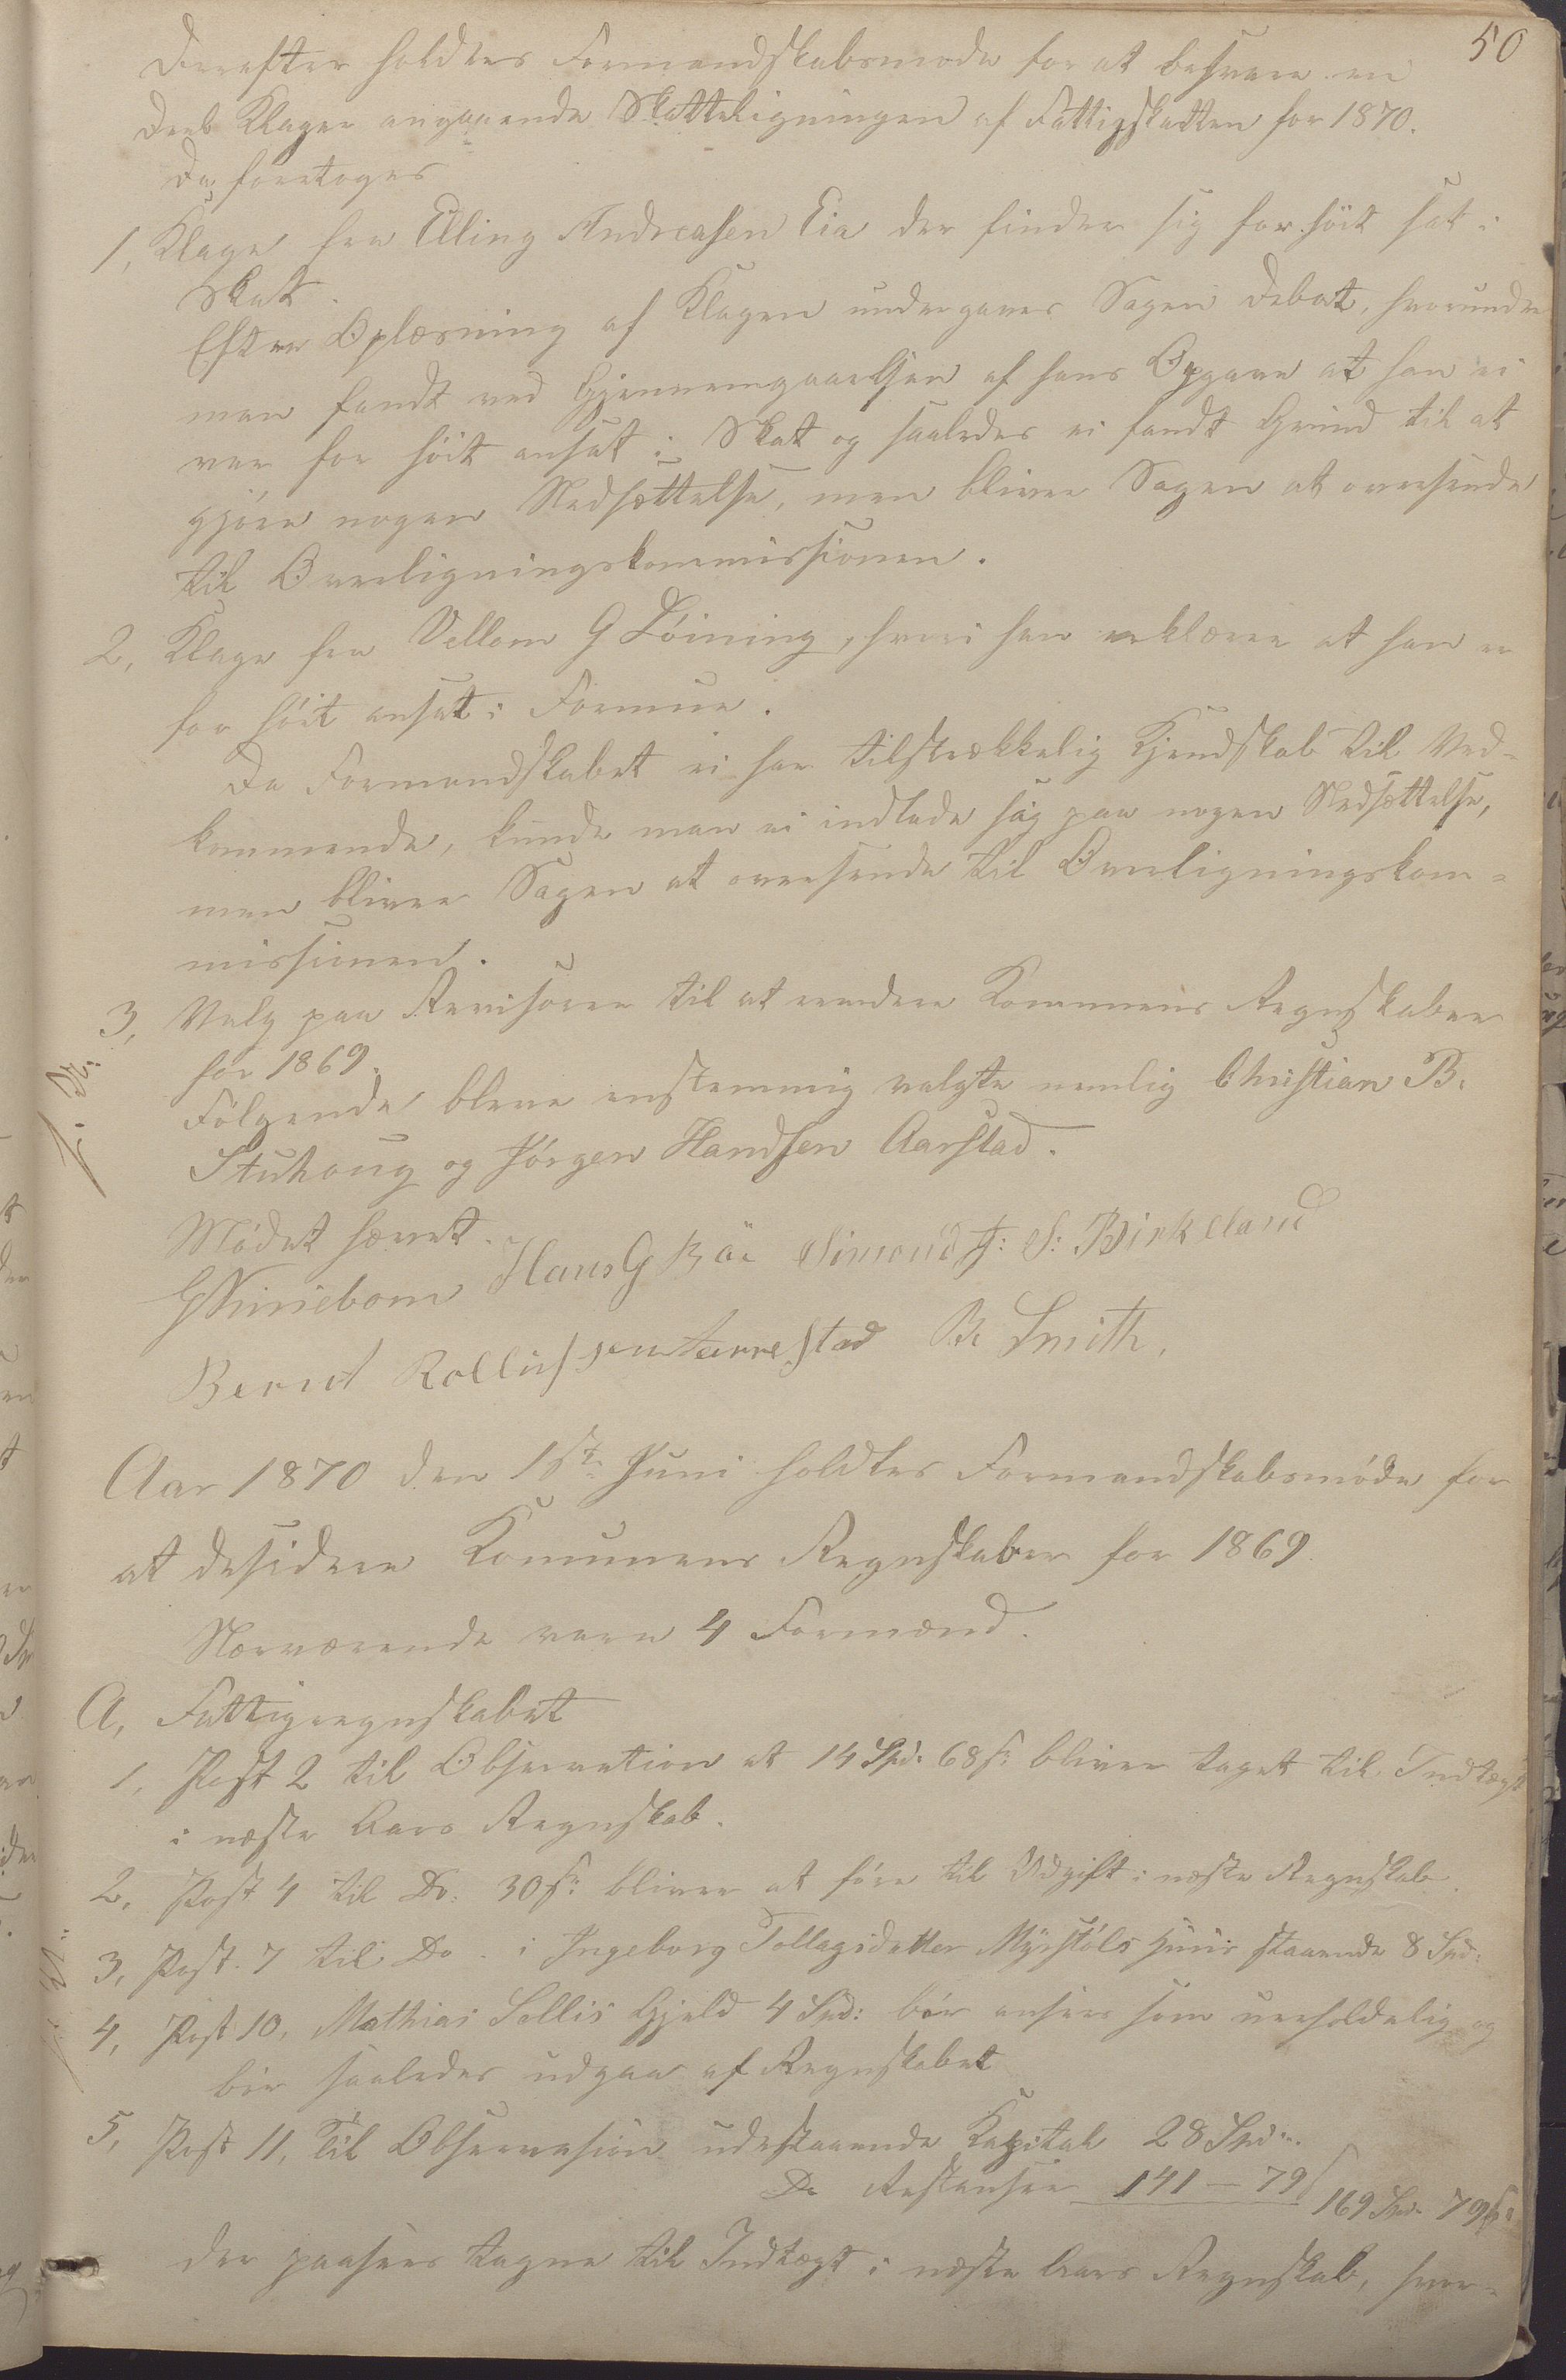 50
Derefter holdtes Formandskabsmøde for at besvare en
Deel Klager angaaende Skatteligningen af Fattigskatten for 1870.
Da foretoges
1, Klage fra Elling Andreasen Eia der finder sig for høit sat i
Skat.
Efter Oplæsning af Klagen undergaves Sagen Debat, hvorunder
man fandt ved Gjennemgaaelsen af hans Opgave at han ei
var for høit ansat i Skat og saaledes ei fandt Grund til at
gjøre nogen Nedsættelse, men bliver Sagen at oversende
til Overligningskommissionen.
2, Klage fra Vellom G Løining, hvori han erklærer at han er
for høit ansat i Formue.
Da Formandskabet ei har tilstrækkelig Kjendskab til Ved-
kommende, kunde man ei indlade sig paa nogen Nedsættelse,
men bliver Sagen at oversende til Overligningskom=
missionen.
3, Valg paa Revisorer til at revidere Kommunens Regnskaber
for 1869.
Følgende bleve enstemmig valgte nemlig Christian B.
Stuhoug og Jørgen Handsen Aarstad.
Mødet hævet.
Hans G Böe Simond F: S: Birkeland
Bernt Rollufssen Aarrestad B. Smith,
Aar 1870 den 15de Juni holdtes Formandskabsmøde for
at desidere Komunens Regnskaber for 1869
Nærværende vare 4 Formænd.
A, Fattigregnskabet
1, Post 2 til Observation at 14 Spd: 68 s: bliver taget til Indtægt
i næste Aars Regnskab.
2, Post 4 til Do: 30 s: bliver at føre til Udgift i næste Regnskab.
3, Post. 7 til Do. i Ingeborg Tollagsdatter Myrstøls Huus staaende 8 Spd:
4, Post 10, Mathias Sellis Gjeld 4 Spd: bør ansees som uerholdelig og
bør saaledes udgaa af Regnskabet
5, Post 11, Til Observasion udestaaende Kapital 28 Spd..
Do Restanser 141 – 79 169 Spd. 79 s:
der paasees tagne til Indtægt i næste Aars Regnskab, hvor=